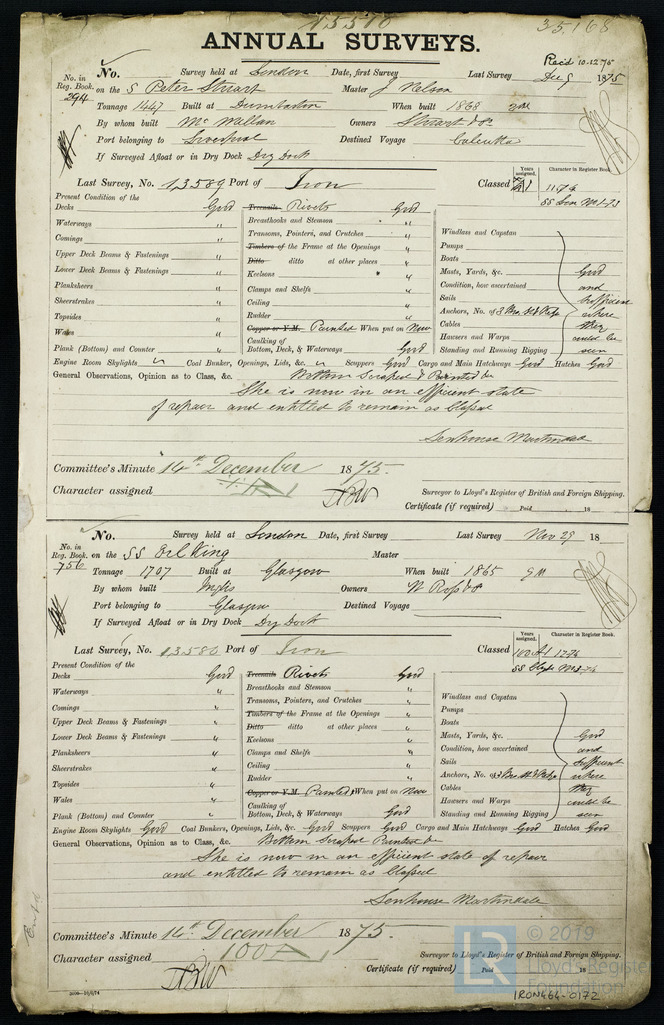 35168
ANNUAL SURVEYS.
Recd 10.12.75
No. in Reg. Book. 294
No. Survey held at London Date, first Survey Last Survey Dec 9 1875
on the S Peter Stuart Master J Nelson
Tonnage 1447 Built at Dumbarton When built 1868 3rd
By whom built McMillan Owners Stuart & Co
Port belonging to Liverpool Destined Voyage Calcutta
If Surveyed Afloat or in Dry Dock Dry Dock
Last Survey, No. 13589 Port of Iron Classed
Years assigned. Character in Register Book.
11.74
SS Lon No 1-73
Present Condition of the
Decks Good
Waterways "
Comings "
Upper Deck Beams & Fastenings "
Lower Deck Beams & Fastenings "
Planksheers "
Sheerstrakes "
Topsides "
Wales "
Plank (Bottom) and Counter "
Treenails Rivets Good
Breasthooks and Stemson "
Transoms, Pointers, and Crutches "
Timbers of the Frame at the Openings "
Ditto ditto at other places "
Keelsons "
Clamps and Shelfs "
Ceiling "
Rudder "
Copper or Y.M. Painted When put on Now
Caulking of
Bottom, Deck, & Waterways Good
Windlass and Capstan
Pumps
Boats
Masts, Yards, &c. Good
Condition, how ascertained and
Sails Sufficient
Anchors, No. of 3 Bro St & Kedge where
Cables they
Hawsers and Warps could be
Standing and Running Rigging seen
Engine Room Skylights " Coal Bunker, Openings, Lids, &c. " Scuppers Good Cargo and Main Hatchways Good Hatches Good
General Observations, Opinion as to Class, &c. Bottom Scraped & Painted &c
She is now in an efficient state
of repair and entitled to remain as Classed
Senhouse Martindale
Committee's Minute 14th December 1875.
Character assigned
Surveyor to Lloyd's Register of British and Foreign Shipping.
Certificate (if required) Paid 18
No. in Reg. Book. 756
No. Survey held at London Date, first Survey Last Survey Nov 29 18
on the SS Erl King Master
Tonnage 1707 Built at Glasgow When built 1865 9 M
By whom built Inglis Owners W Ross & Co
Port belonging to Glasgow Destined Voyage
If Surveyed Afloat or in Dry Dock Dry Dock
Last Survey, No. 13580 Port of Iron Classed 100 A1 12.74
Years assigned. Character in Register Book.
Present Condition of the
Decks Good
Waterways "
Comings "
Upper Deck Beams & Fastenings "
Lower Deck Beams & Fastenings "
Planksheers "
Sheerstrakes "
Topsides "
Wales "
Plank (Bottom) and Counter "
Treenails Rivets Good
Breasthooks and Stemson "
Transoms, Pointers, and Crutches "
Timbers of the Frame at the Openings "
Ditto ditto at other places "
Keelsons "
Clamps and Shelfs "
Ceiling "
Rudder "
Copper or Y.M. Painted When put on Now
Caulking of
Bottom, Deck, & Waterways Good
Windlass and Capstan
Pumps
Boats
Masts, Yards, &c. Good
Condition, how ascertained and
Sails Sufficient
Anchors, No. of 3 Bro St & Kedge where
Cables they
Hawsers and Warps could be
Standing and Running Rigging seen
Engine Room Skylights Good Coal Bunkers, Openings, Lids, &c. Good Scuppers Good Cargo and Main Hatchways Good Hatches Good
General Observations, Opinion as to Class, &c. Bottom Scraped Painted &c
She is now in an efficient state of repair
and entitled to remain as Classed
Senhouse Martindale
Committee's Minute 14th December 1875.
Character assigned 100 A1
Surveyor to Lloyd's Register of British and Foreign Shipping.
Certificate (if required) Paid 18
© 2019
Lloyd's Register
Foundation
IRON464-0172